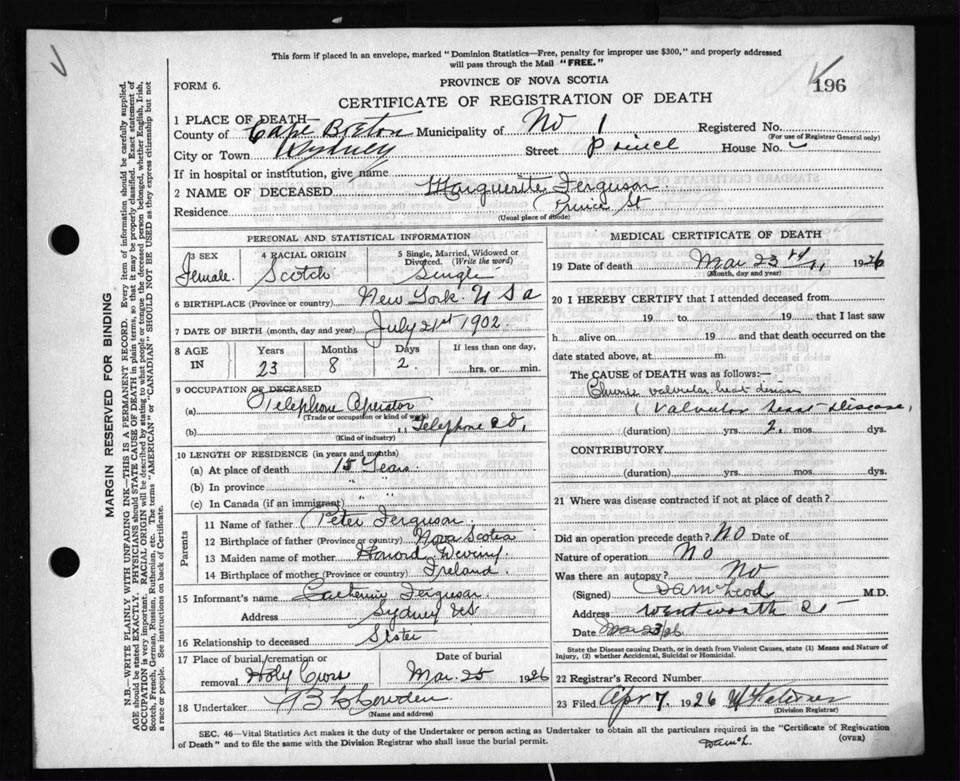 This form if placed in an envelope, marked "Dominion Statistics—Free, penalty for improper use $300," and properly addressed
will pass through the Mail "FREE."
FORM 6.
PROVINCE OF NOVA SCOTIA
196
CERTIFICATE OF REGISTRATION OF DEATH
1 PLACE OF DEATH
County of Cape Breton Municipality of No 1 Registered No.
(For use of Registrar General only)
City or Town Sydney Street Prince House No.
If in hospital or institution, give name
2 NAME OF DECEASED Marguerite Ferguson
Residence Prince St
(Usual place of abode)
PERSONAL AND STATISTICAL INFORMATION
3 SEX Female
4 RACIAL ORIGIN Scotch
5 Single, Married, Widowed or Divorced. (Write the word) Single
6 BIRTHPLACE (Province or country) New York. U S a
7 DATE OF BIRTH (month, day and year) July 21st 1902.
8 AGE IN
Years 23
Months 8
Days 2
If less than one day, hrs. or min.
9 OCCUPATION OF DECEASED
(a) Telephone Operator
(Trade of occupation or kind of work)
(b) Telephone Co,
(Kind of industry)
10 LENGTH OF RESIDENCE (in years and months)
(a) At place of death 15 Years
(b) In province " "
(c) In Canada (if an immigrant) " "
Parents
11 Name of father Peter Ferguson
12 Birthplace of father (Province or country) Nova Scotia
13 Maiden name of mother
14 Birthplace of mother (Province or country) Ireland.
15 Informant's name Catherine Ferguson
Address Sydney NS
16 Relationship to deceased Sister
17 Place of burial, cremation or removal Holy Cross
Date of burial Mar. 25 1926
18 Undertaker
(Name and address)
MEDICAL CERTIFICATE OF DEATH
19 Date of death Mar 23rd 1926
(Month, day and year)
20 I HEREBY CERTIFY that I attended deceased from
19 to 19 that I last saw
h alive on 19 and that death occurred on the
date stated above, at m.
The CAUSE of DEATH was as follows:—
valvular heart disease
(Valvular heart Disease,
(duration) yrs. 2. mos. dys.
CONTRIBUTORY
(duration) yrs. mos. dys.
21 Where was disease contracted if not at place of death?
Did an operation precede death? NO Date of
Nature of operation No
Was there an autopsy? No
(Signed) McLeod M.D.
Address Wentworth
Date Mar 23/26
State the Disease causing Death, or in death from Violent Causes, state (1) Means and Nature of
Injury, (2) whether Accidental, Suicidal or Homicidal.
22 Registrar's Record Number
23 Filed Apr 7. 1926
(Division Registrar)
SEC. 46—Vital Statistics Act makes it the duty of the Undertaker or person acting as Undertaker to obtain all the particulars required in the "Certificate of Registration
of Death" and to file the same with the Division Registrar who shall issue the burial permit.
(OVER)
MARGIN RESERVED FOR BINDING
N.B.—WRITE PLAINLY WITH UNFADING INK—THIS IS A PERMANENT RECORD. Every item of information should be carefully supplied.
AGE should be stated EXACTLY. PHYSICIANS should STATE CAUSE OF DEATH in plain terms, so that it may be properly classified. Exact statement of
OCCUPATION is very important. RACIAL ORIGIN will be described by stating to what people or tongue the deceased person belonged, whether English, Irish,
Scotch, French, German, Russian, Ruthenian, etc. The terms "AMERICAN" or "CANADIAN" SHOULD NOT BE USED as they express citizenship but not
a race or people. See instructions on back of Certificate.